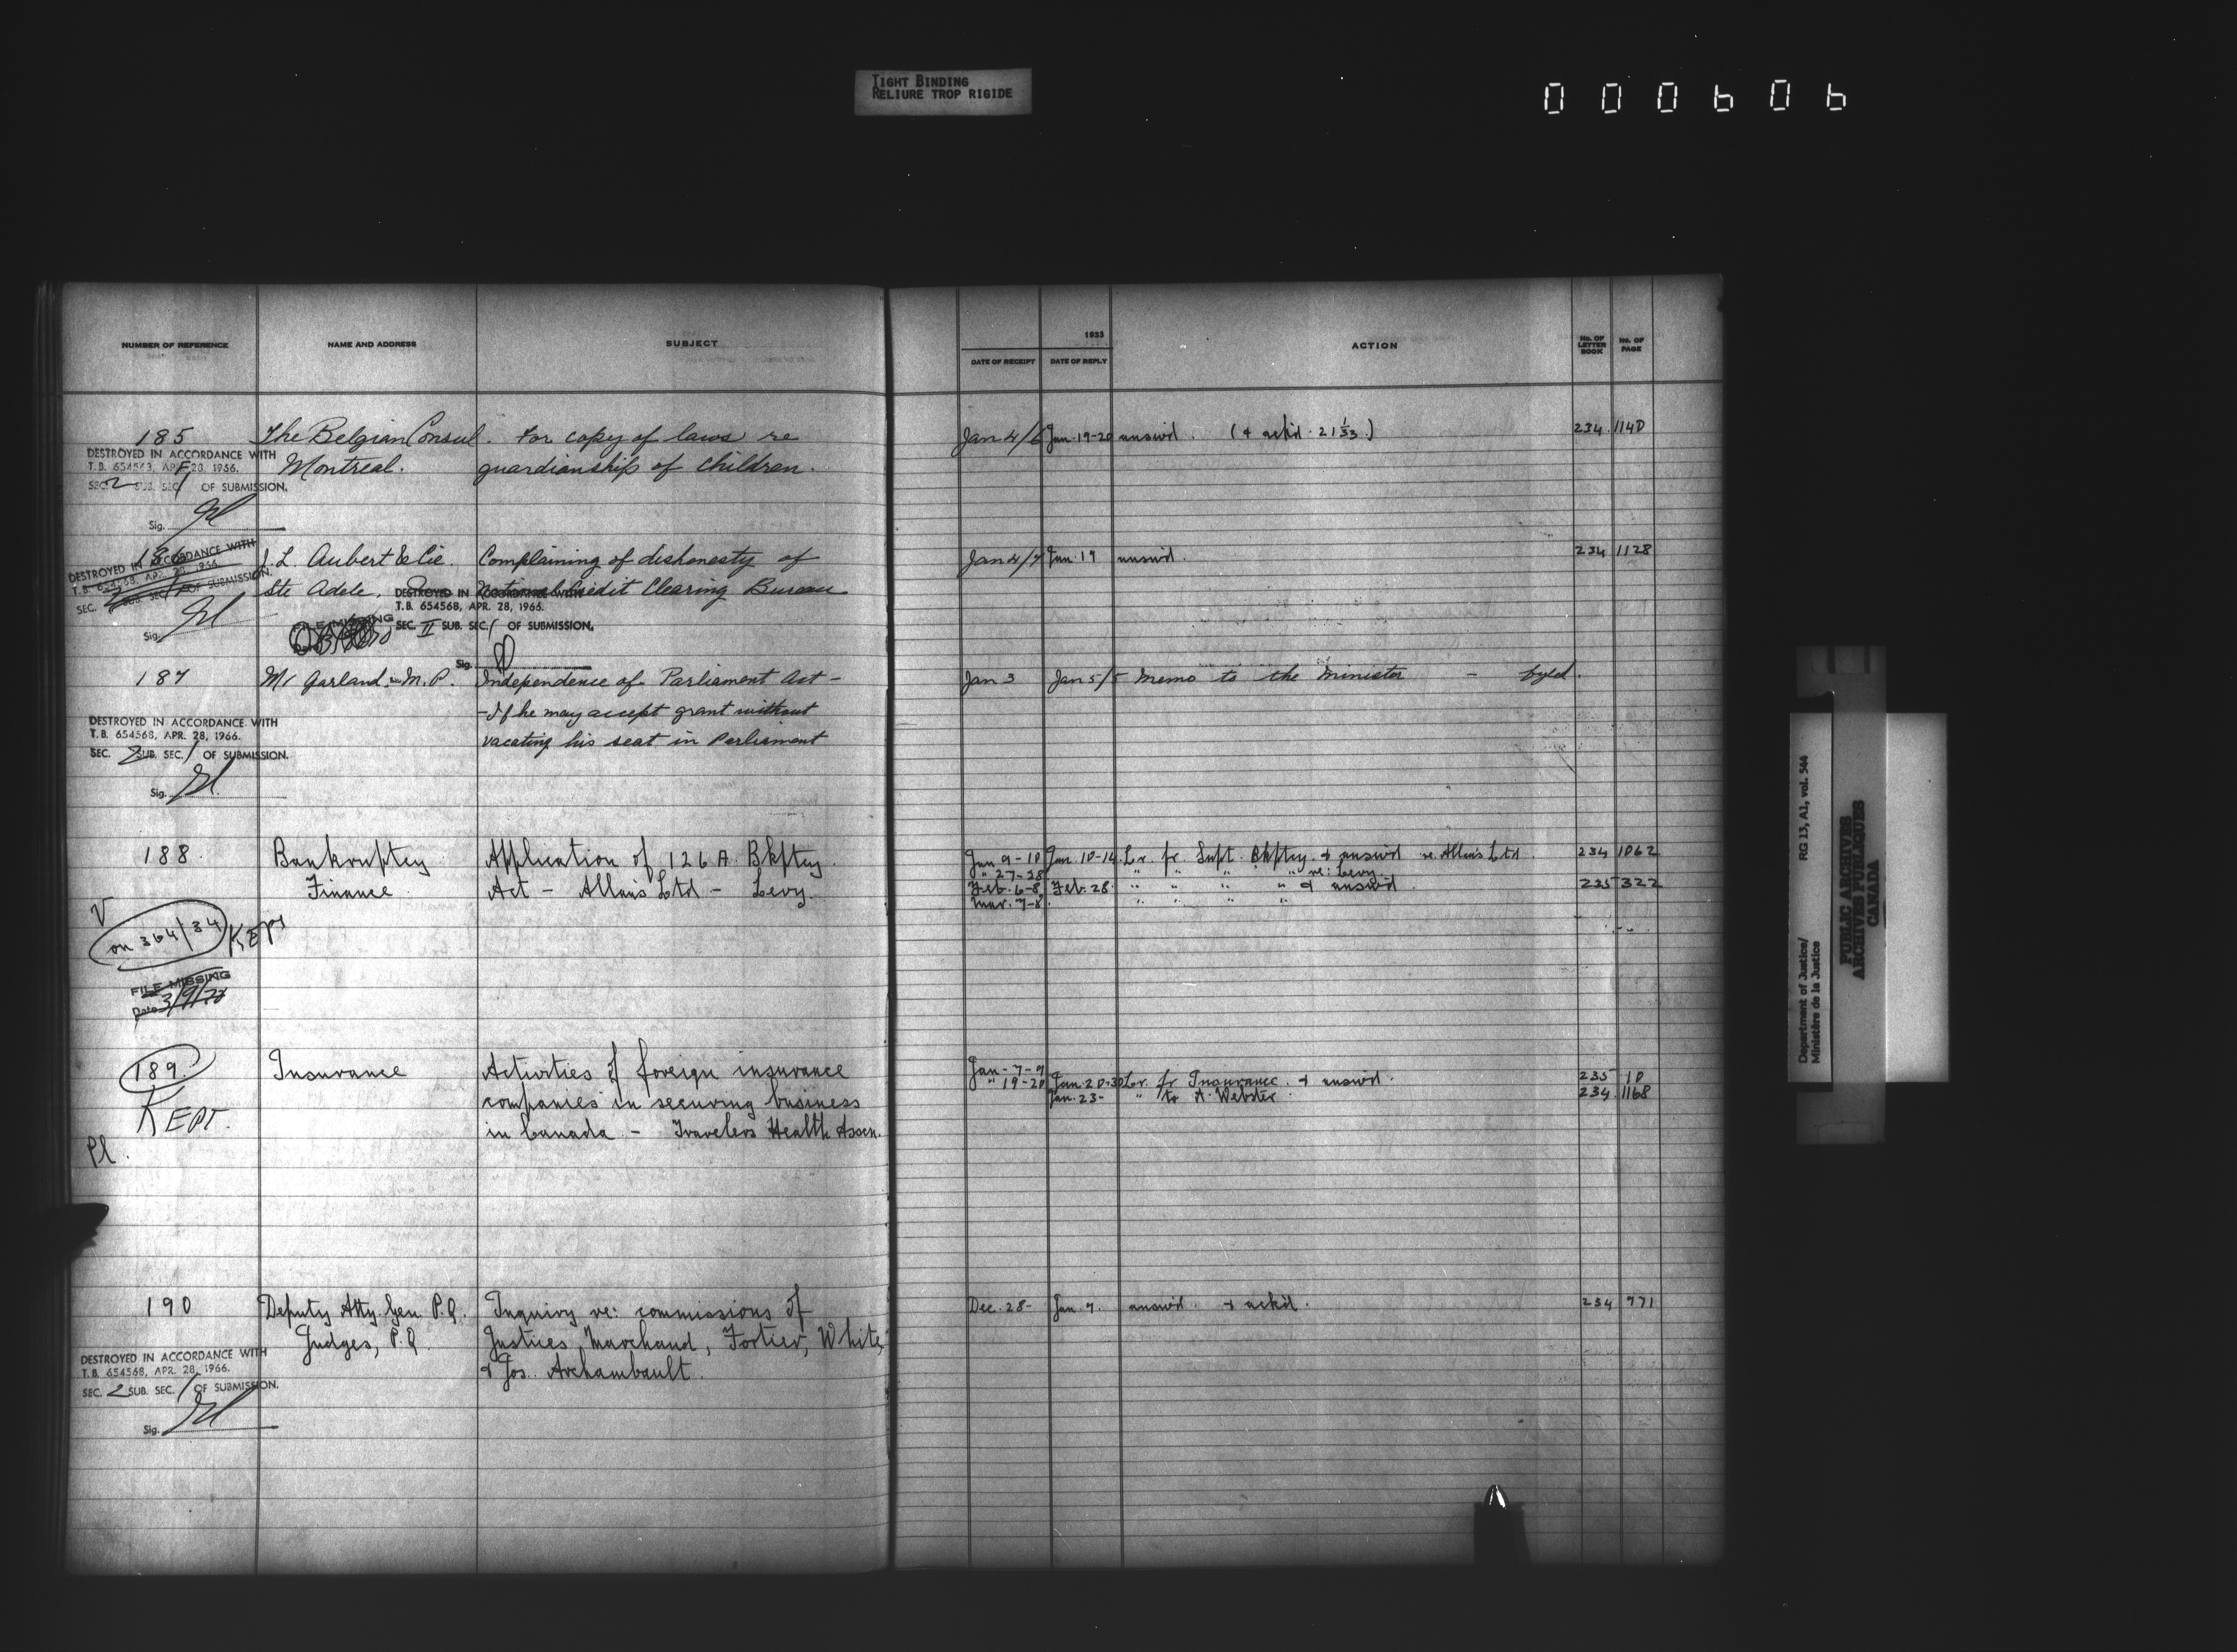 TIGHT BINDING
RELIURE TROP RIGIDE
000606
NUMBER OF REFERENCE NAME AND ADDRESS SUBJECT
1933
DATE OF RECEIPT DATE OF REPLY ACTION No. OF LETTER BOOK No. OF PAGE
185 The Belgian Consul. For copy of laws re Jan 4/6 Jan. 19-20 answd. (& ackd. 21 1/33) 234. 1140
DESTROYED IN ACCORDANCE WITH
T.B. 654568, APR 28, 1966.
Montreal. guardianship of children.
SEC. 2 SUB. SEC. 1 OF SUBMISSION.
Sig.
186 J. L. Aubert & Cie. Complaining of dishonesty of Jan 4/7 Jan. 19 answd. 234 1128
DESTROYED IN ACCORDANCE WITH
T.B. 654568, APR. 28, 1966.
SEC. SUB. SEC. OF SUBMISSION.
Sig.
Ste Adele. National Credit Clearing Bureau
DESTROYED IN ACCORDANCE WITH
T.B. 654568, APR. 28, 1966.
SEC. II SUB. SEC. 1 OF SUBMISSION.
FILE MISSING
Sig.
187 Mr Garland, M.P. Independence of Parliament Act - Jan 3 Jan 5/5 Memo to the Minister - fyled.
- If he may accept grant without
vacating his seat in Parliament
DESTROYED IN ACCORDANCE WITH
T.B. 654568, APR. 28, 1966.
SEC. 2 SUB. SEC. 1 OF SUBMISSION.
Sig.
188. Bankruptcy Application of 126 A. Bkptcy. Jan 9-10 Jan. 10-14 Lr. fr. Supt. Bkptcy. & answd re. Allans Ltd. 234 1062
" 27-28 " " " " re: Levy.
Finance. Act - Allans Ltd - Levy. Feb. 6-8 Feb. 28. " " " " & answd. 235 322
Mar. 7-8. " " " "
V
on 364/34 KEPT
FILE MISSING
Date 3/9/73
189. Insurance Activities of foreign insurance Jan-7-9
" 19-20 Jan. 20-30 Lr. fr Insurance. & answd. 235 10
KEPT. companies in securing business Jan. 23- " to A. Webster. 234. 1168
in Canada - Travelers Health Assen.
Pl.
190 Deputy Atty. Gen. P.Q. Inquiry re: commissions of Dec. 28- Jan. 7. answd. & ackd. 234 971
Judges, P.Q. Justices Marchand, Fortier, White,
& Jos. Archambault.
DESTROYED IN ACCORDANCE WITH
T.B. 654568, APR. 28, 1966.
SEC. 2 SUB. SEC. 1 OF SUBMISSION.
Sig.
Department of Justice/
Ministère de la Justice
RG 13, A1, vol. 544
PUBLIC ARCHIVES
ARCHIVES PUBLIQUES
CANADA